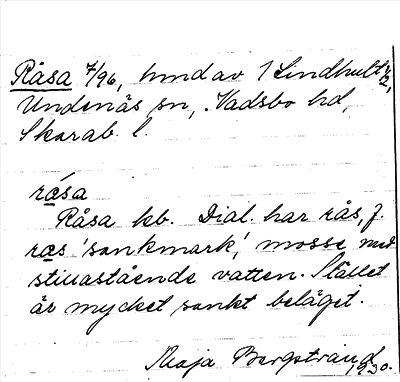 Råsa 7/96, hmd av 1 Lindhult 1/2,
Undenäs sn, Vadsbo hd,
Skarab. l.
råsa
Råsa kb. Dial. har rås, f.
ras 'sankmark', mosse med
stillastående vatten. Stället
är mycket sankt beläget.
Maja Bergstrand 1930.